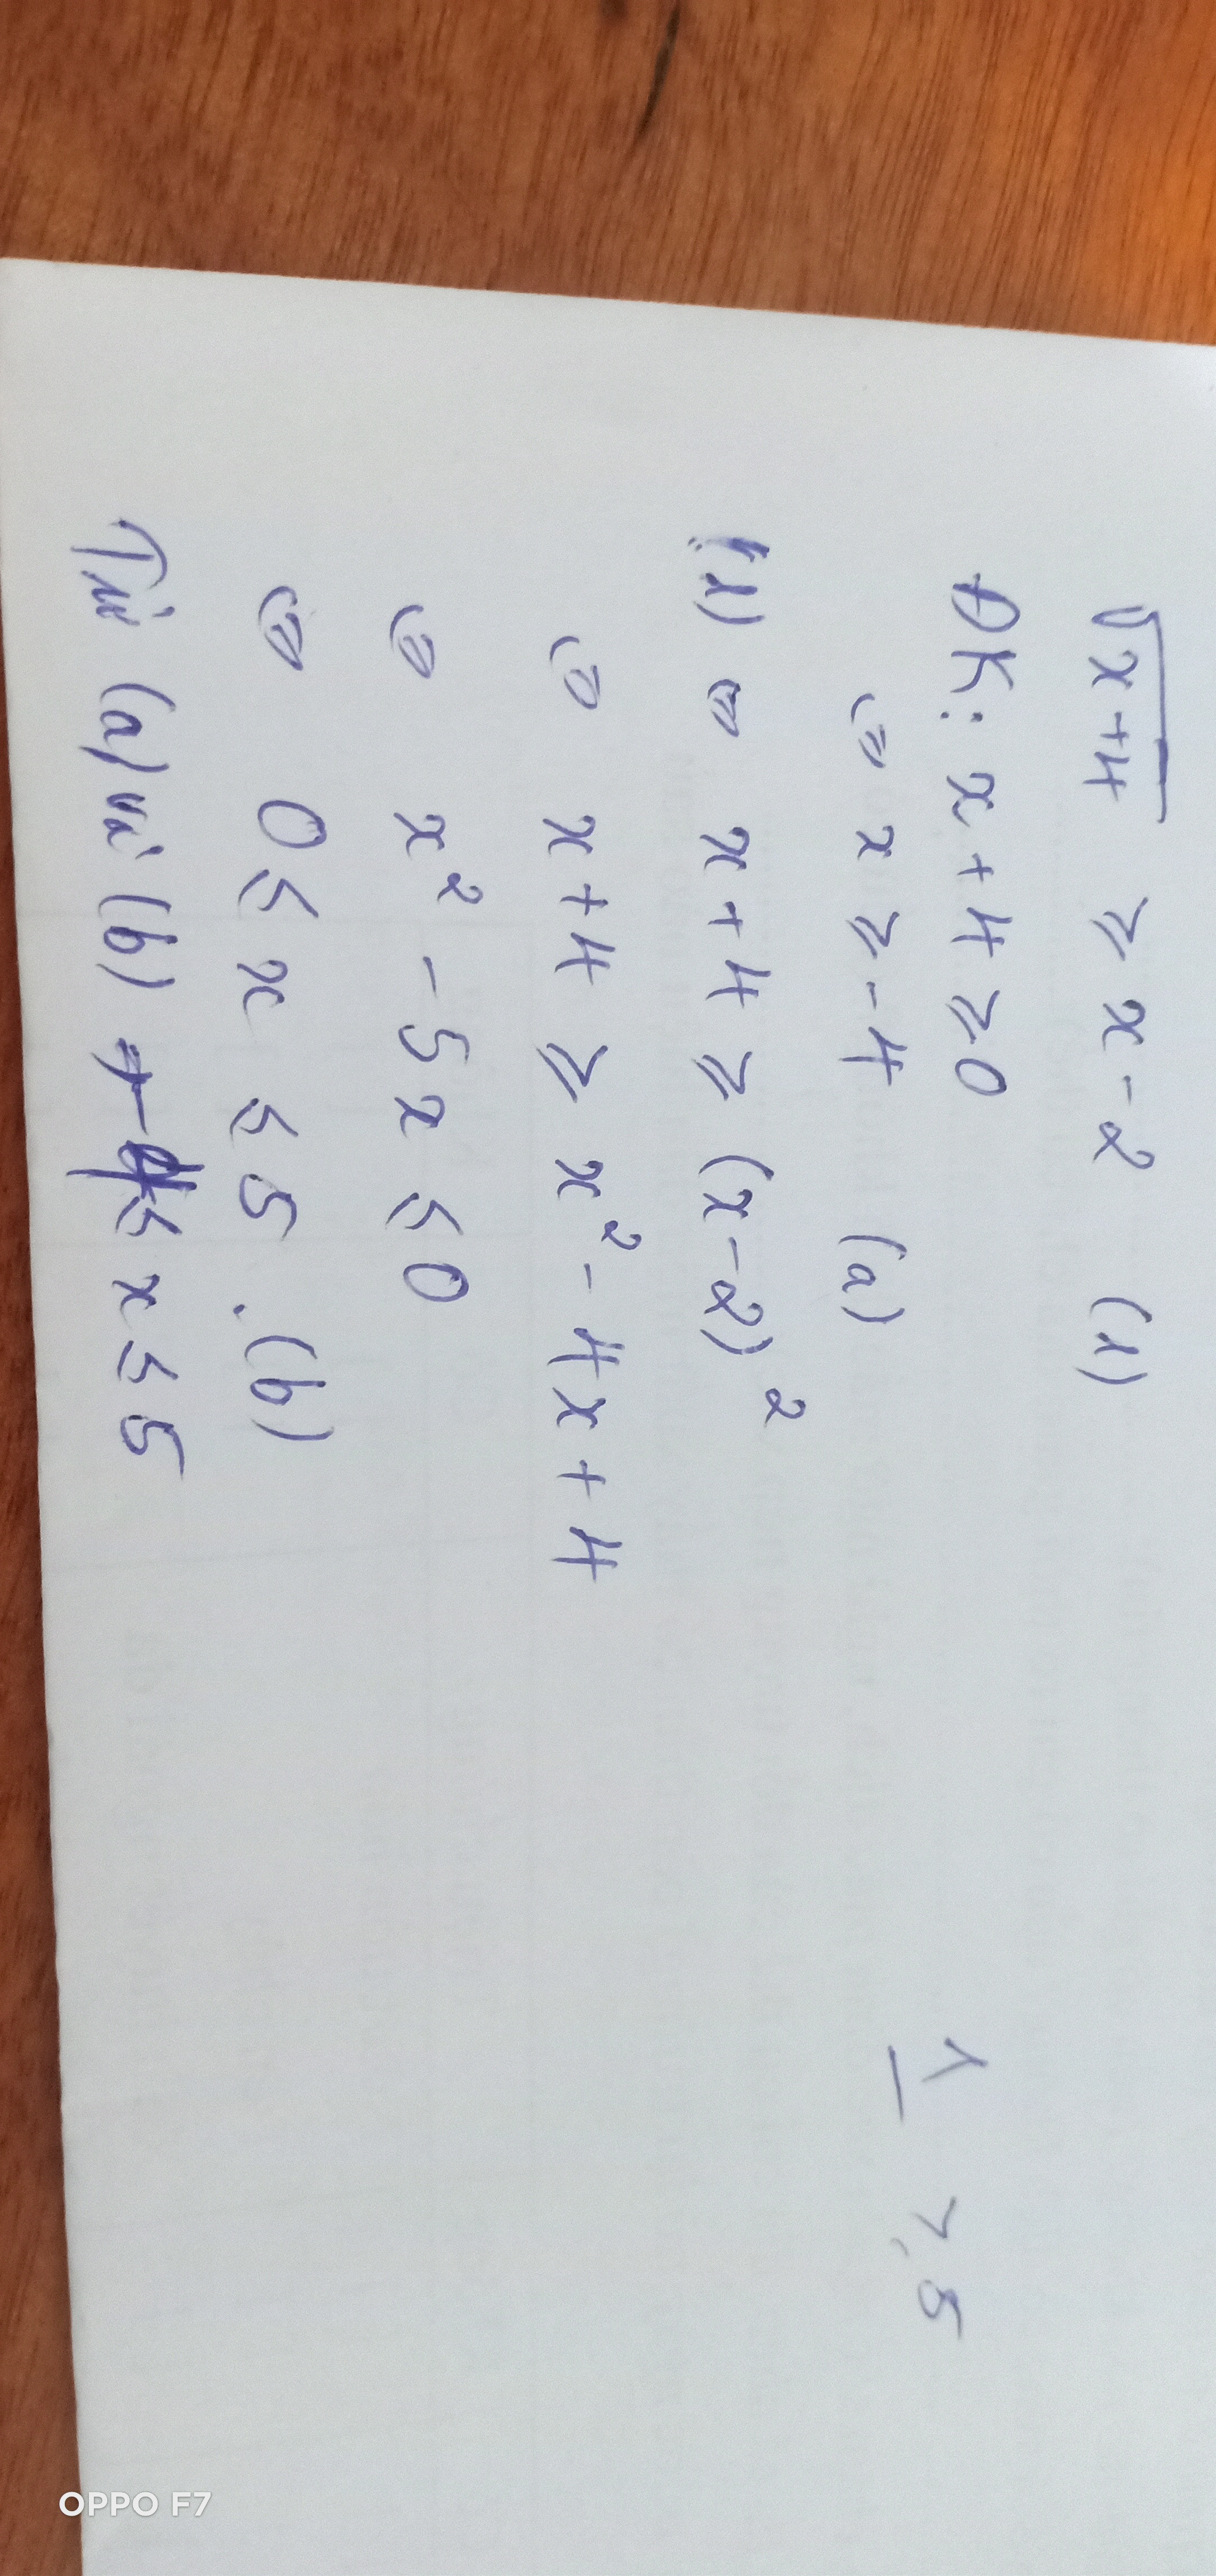 √x+4 ≥ x-2 (1)
ĐK: x+4 ≥ 0
⇔ x ≥ -4 (a)
(1) ⇔ x+4 ≥ (x-2)²
⇔ x+4 ≥ x² - 4x + 4
⇔ x² - 5x ≤ 0
⇔ 0 ≤ x ≤ 5 (b)
Từ (a) và (b) ≤ x ≤ 5
OPPO F7